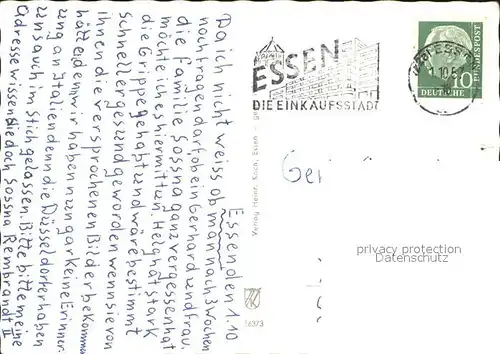 Essen den 1.10
Da ich nicht weiss ob man nach 3 Wochen
nachtragen darf ob ein Gerhard und Frau.
die Familie Sossna ganz vergessen hat
möchte ich es hier mitteilen. Helg hat stark
die Grippe gehabt und wäre bestimmt
schneller gesund geworden wenn sie von
Ihnen die versprochenen Bilder bekommen
hätte denn wir haben nun gar keine Erinner.
ung an Italien denn die Düsseldorfer haben
uns auch im Stich gelassen. Bitte bitte meine
Adresse wissen Sie doch Sossna Rembrandt II
ESSEN
DIE EINKAUFSSTADT
DEUTSCHE
BUNDESPOST
10
Verlag Heinr. Koch, Essen
16373
Ger
privacy protection
Datenschutz